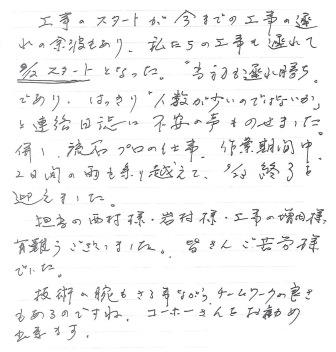 工事のスタートが今までの工事の遅
れの余波もあり、私たちの工事も遅れて
8/2スタートとなった。当初も遅れ勝ち
であり、はっきり"人数が少いのではないか"
と連絡日誌に不安の声ものせました
併し、流石プロの仕事、作業期間中
2日間の雨も乗り越えて、終了を
迎えました。
担当の西村様・岩村様・工事の増田様、
有難うございました。皆さんご苦労様
でした。
技術の腕もさる事ながら、チームワークの良さ
もあるのですね。コーホーさんをお勧め
出来ます。